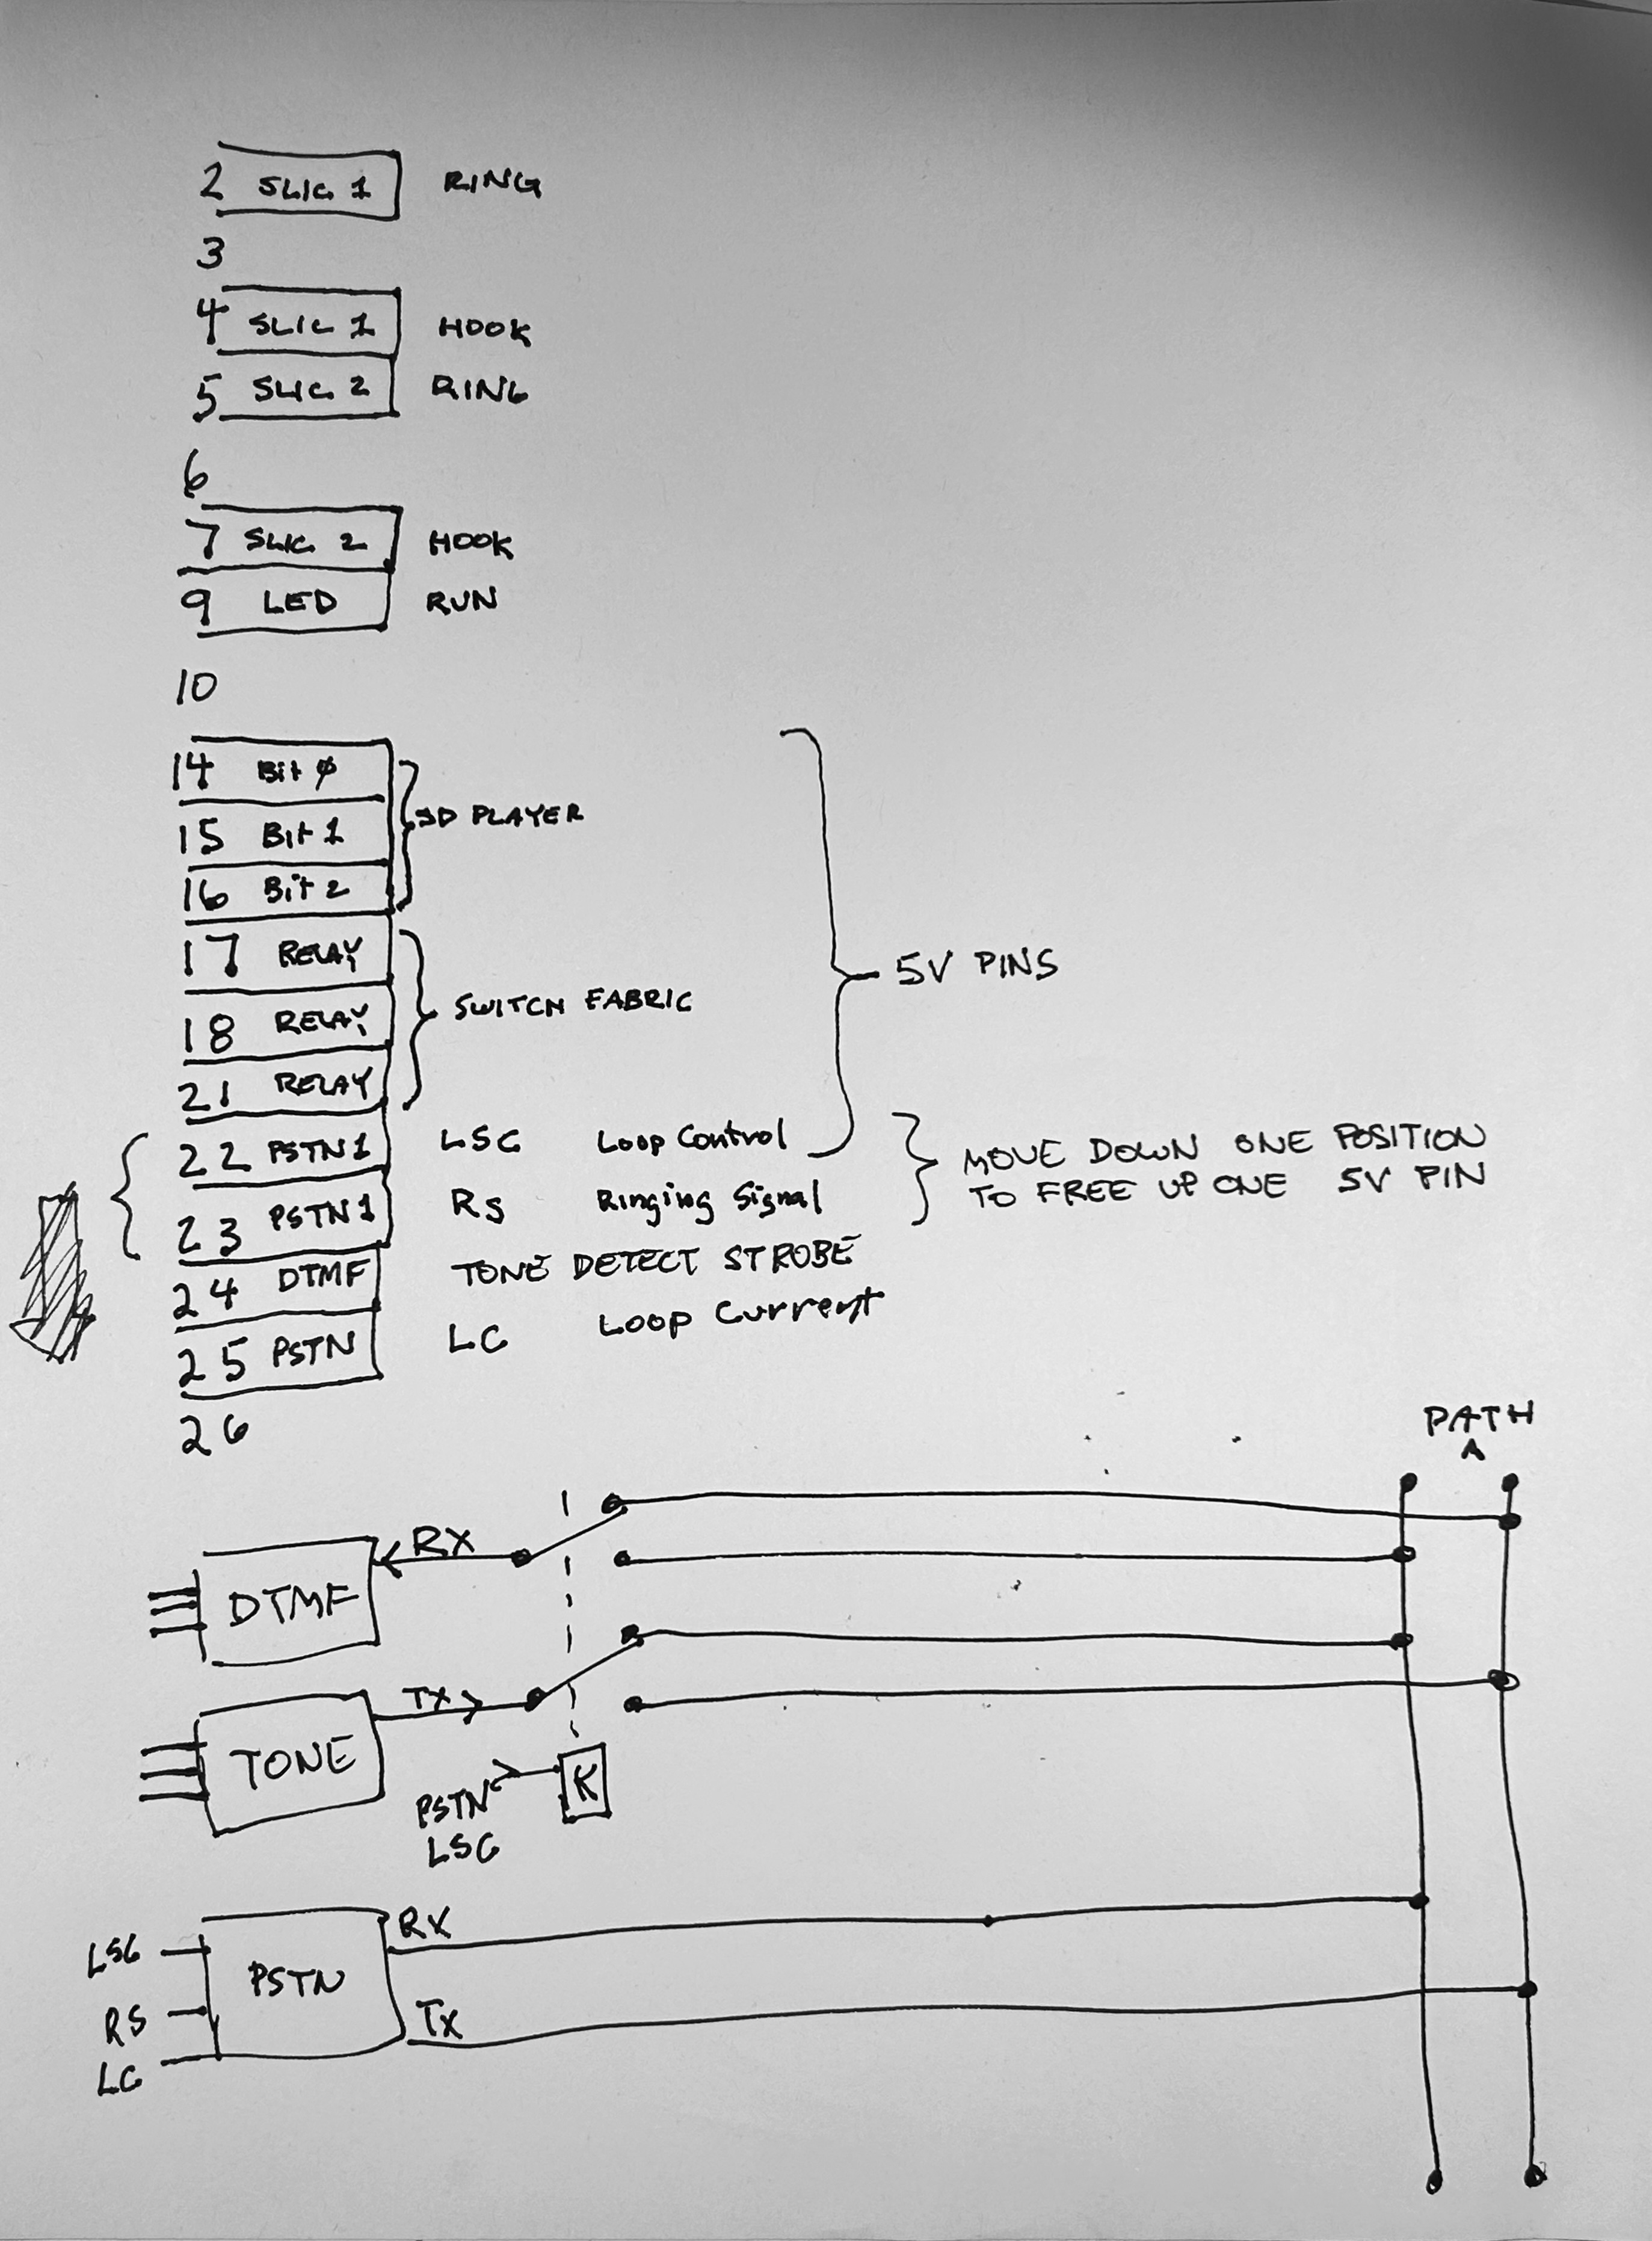 2 SLIC 1 RING
3
4 SLIC 1 HOOK
5 SLIC 2 RING
6
7 SLIC 2 HOOK
9 LED RUN
10
14 Bit 0
15 Bit 1
16 Bit 2
SD PLAYER
17 RELAY
18 RELAY
21 RELAY
SWITCH FABRIC
5V PINS
22 PSTN1 LSC Loop Control
23 PSTN1 RS Ringing Signal
MOVE DOWN ONE POSITION
TO FREE UP ONE 5V PIN
24 DTMF TONE DETECT STROBE
25 PSTN LC Loop Current
26
PATH
A
RX
DTMF
TX
TONE
K
PSTN
LSC
RX
LSC
PSTN
RS
TX
LC